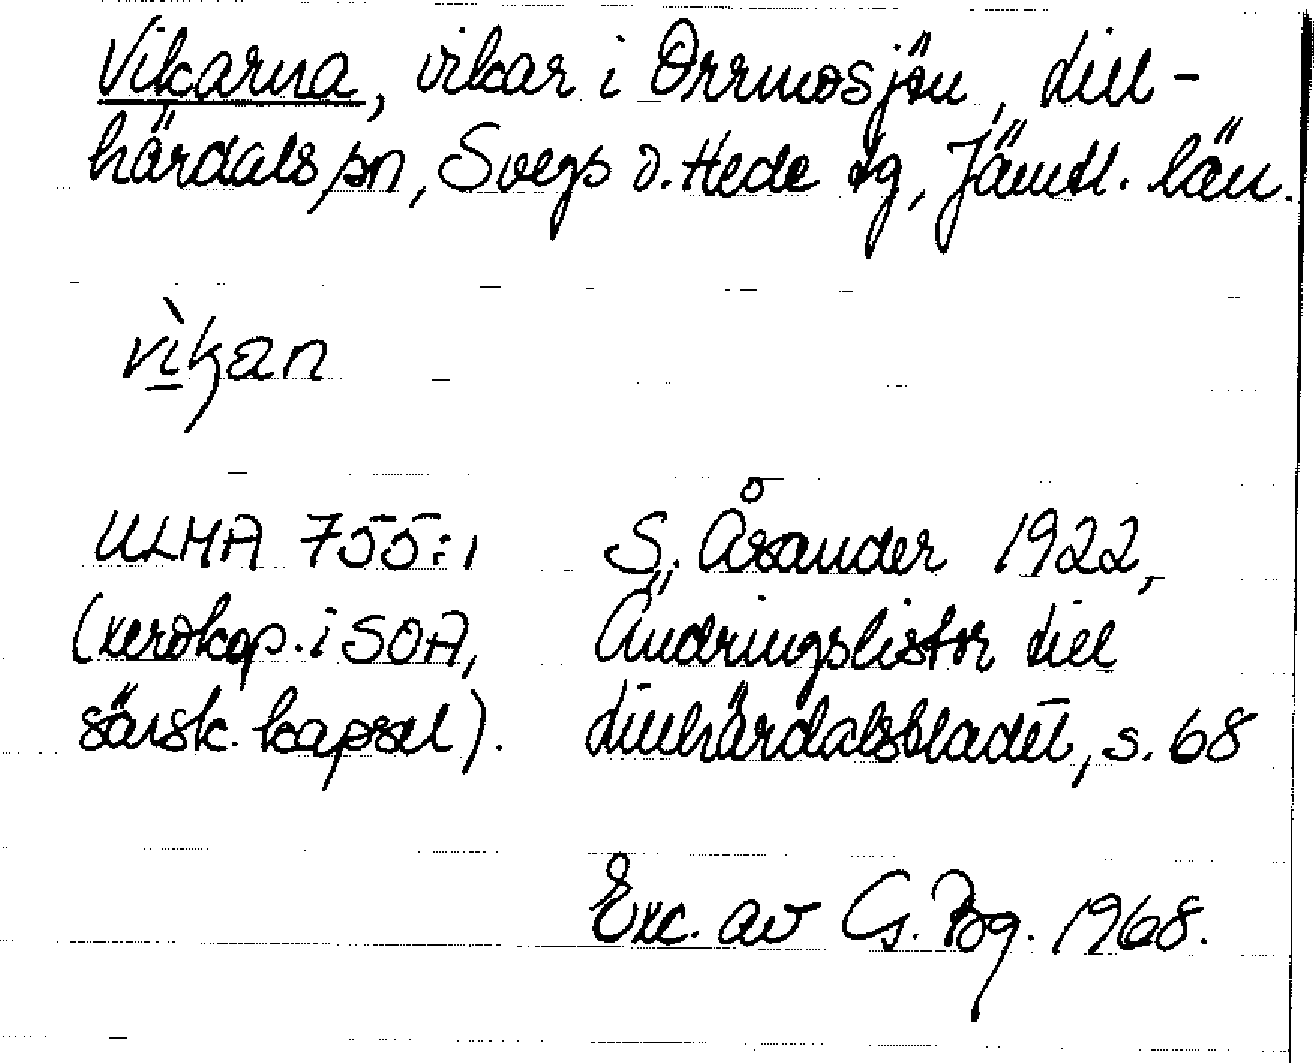 Vikarna, vikar i Orrmosjön, Lill-
härdals sn, Svegs o. Hede tg, Jämtl. län.
vìkan
ULMA 755:1
(xerokop. i SOA,
särsk. kapsel).
S. Åsander 1922,
Ändringslistor till
Lillhärdalsbladet, s. 68
Exc. av G. Bg. 1968.